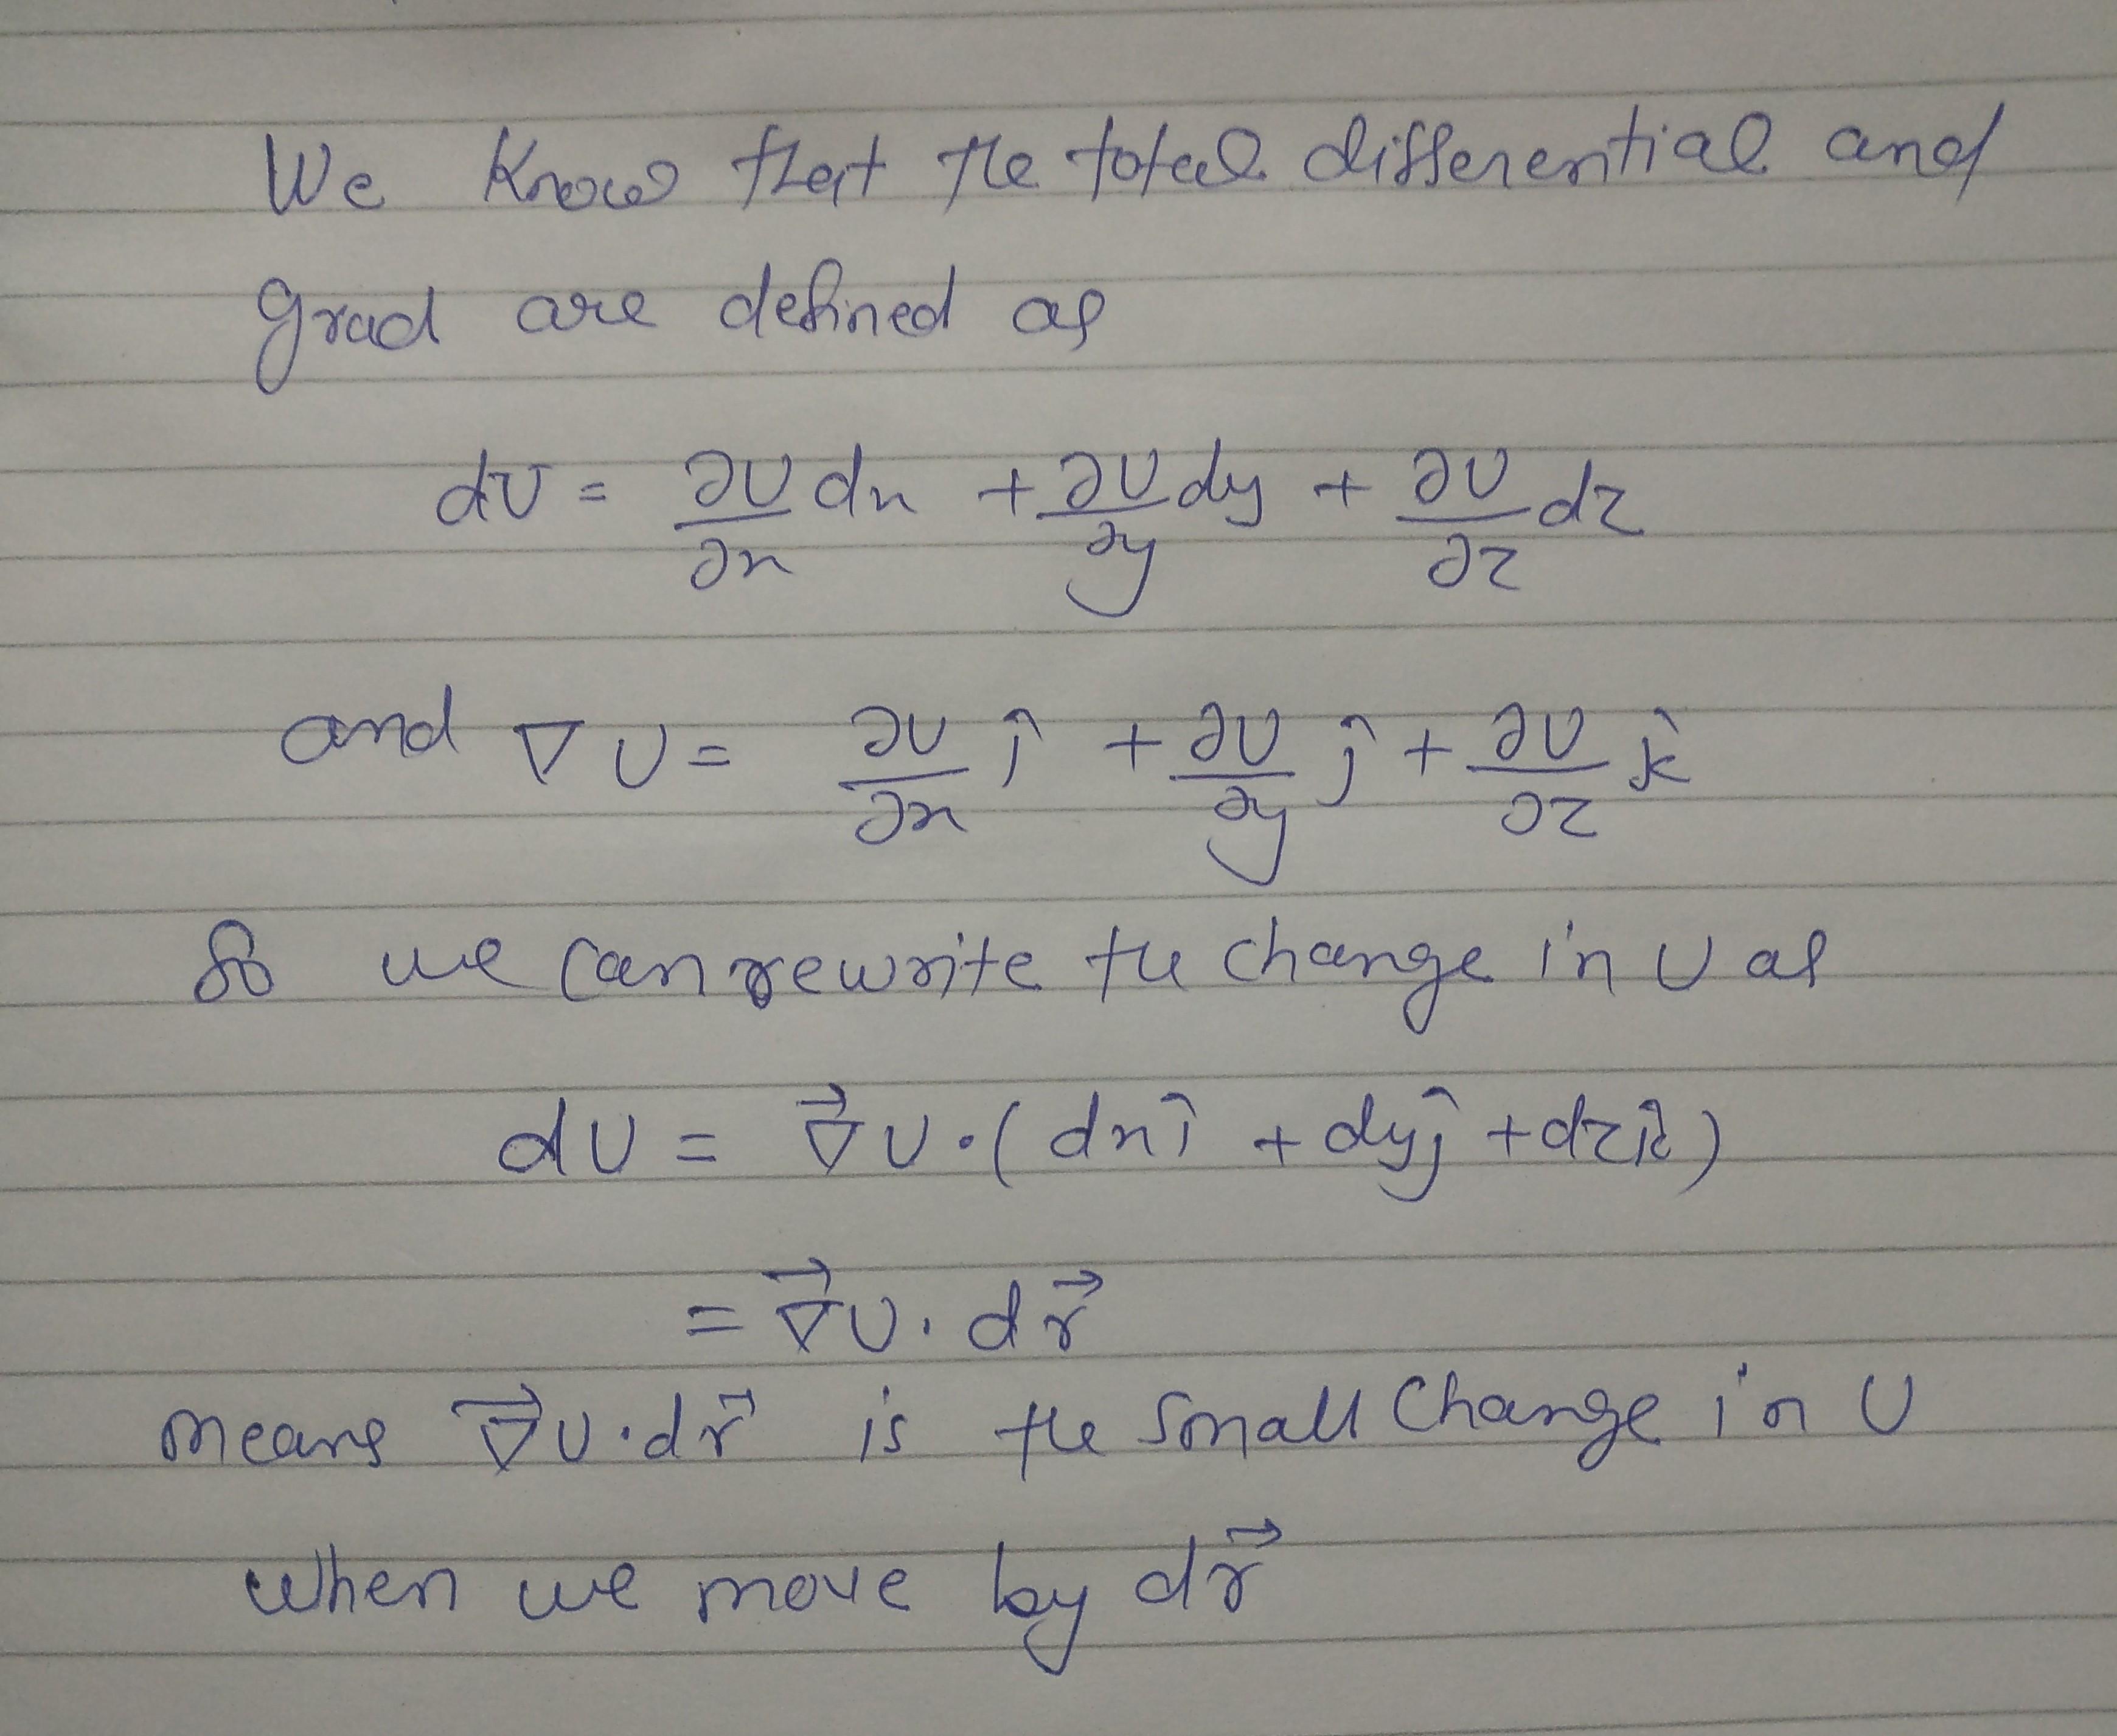 We know that the total differential and
grad are defined as
dU = ∂U/∂x dx + ∂U/∂y dy + ∂U/∂z dz
and ∇U = ∂U/∂x î + ∂U/∂y ĵ + ∂U/∂z k̂
So we can rewrite the change in U as
dU = ∇⃗U·(dxî + dyĵ + dzk̂)
= ∇⃗U·dr⃗
means ∇⃗U·dr⃗ is the small change in U
when we move by dr⃗